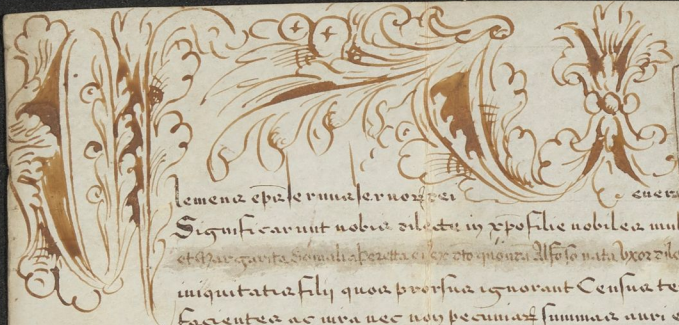 lemens ep̃s servus servor dei
Significarunt nobis dilecte in xp̃o filie nobiles mul
et Margarita de Alfonso nata Uxor
iniquitatis filii quos prorsus ignorant Census te
facientes ac iura nec non pecuniar summas auri e